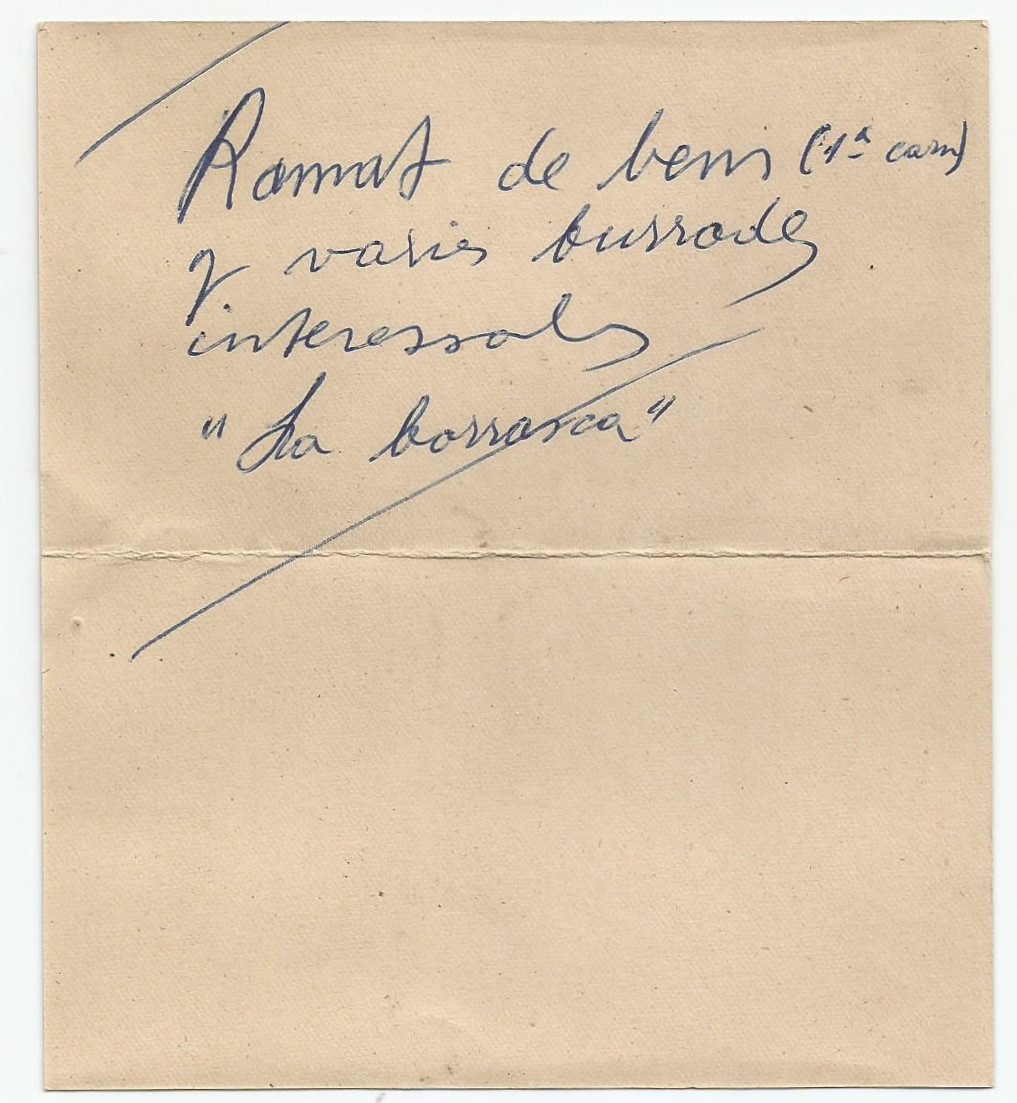 Ramat de bens (1ª carn)
y varies burrades
interessals
"La borrasca"